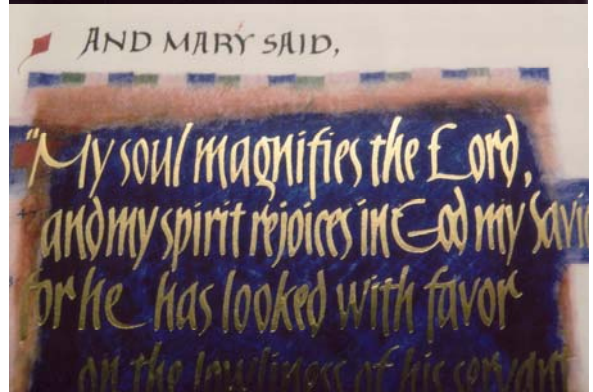 AND MARY SAID,
"My soul magnifies the Lord,
and my spirit rejoices in God my Savi
for he has looked with favor
on the lowliness of his servant